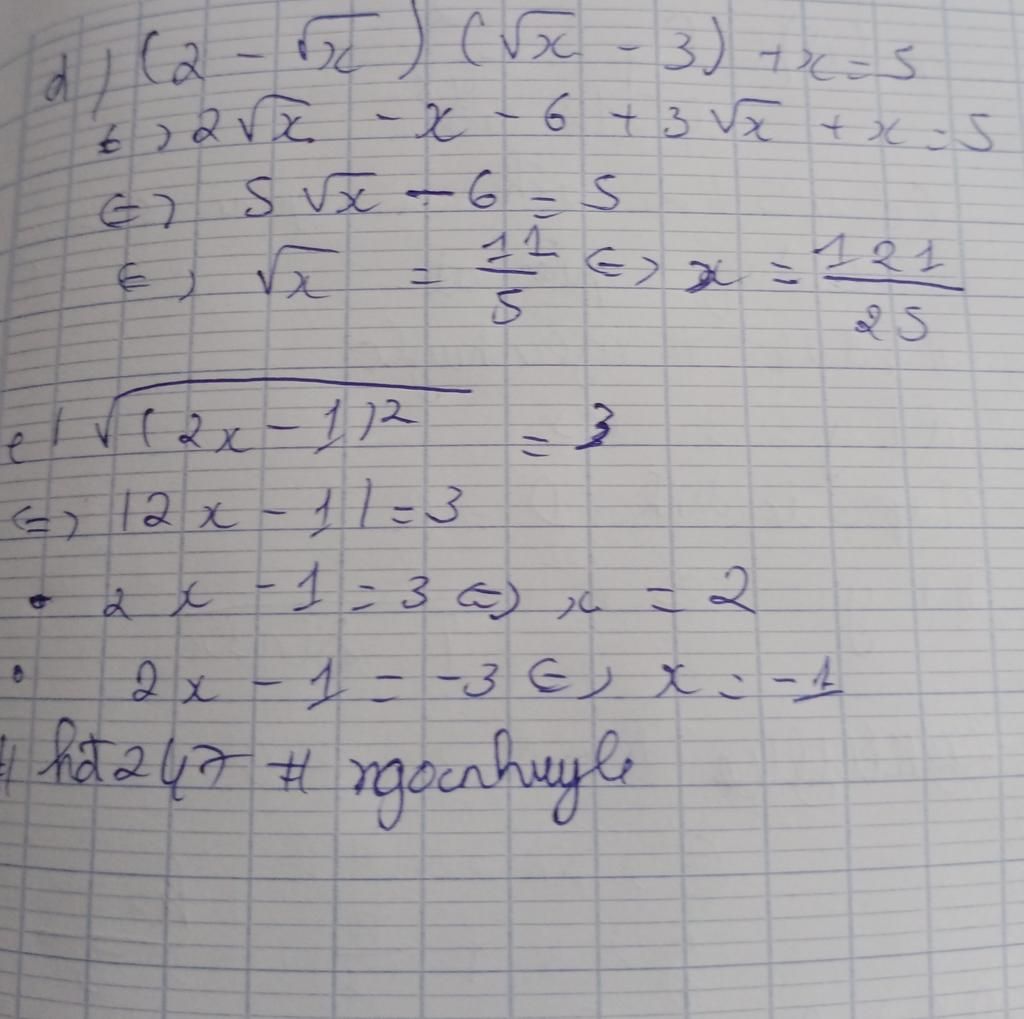 d) (2 - √x) (√x - 3) + x = 5
⇔ 2√x - x - 6 + 3√x + x = 5
⇔ 5√x - 6 = 5
⇔ √x = 11/5 ⇔ x = 121/25
e) √(2x - 1)² = 3
⇔ |2x - 1| = 3
• 2x - 1 = 3 ⇔ x = 2
• 2x - 1 = -3 ⇔ x = -1
# hđ247 # ngocnhuyle